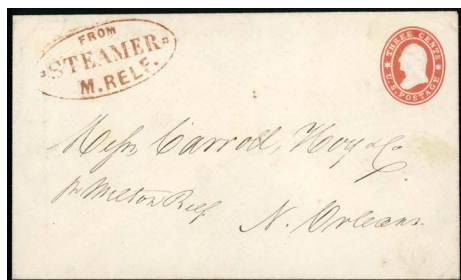 FROM
STEAMER
M. RELF.
THREE CENTS
U.S. POSTAGE
Mess Carroll, Hoy & Co
pr Milton Relf
N. Orleans